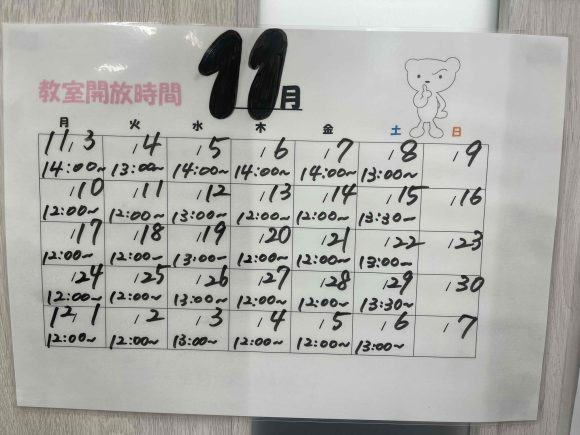 11月
教室開放時間
月 火 水 木 金 土 日
11/3 /4 /5 /6 /7 /8 /9
14:00~ 13:00~ 14:00~ 14:00~ 14:00~ 13:00~
/10 /11 /12 /13 /14 /15 /16
12:00~ 12:00~ 13:00~ 12:00~ 12:00~ 13:30~
/17 /18 /19 /20 /21 /22 /23
12:00~ 12:00~ 13:00~ 12:00~ 12:00~ 13:00~
/24 /25 /26 /27 /28 /29 /30
12:00~ 12:00~ 13:00~ 12:00~ 12:00~ 13:30~
12/1 /2 /3 /4 /5 /6 /7
12:00~ 12:00~ 13:00~ 12:00~ 12:00~ 13:00~